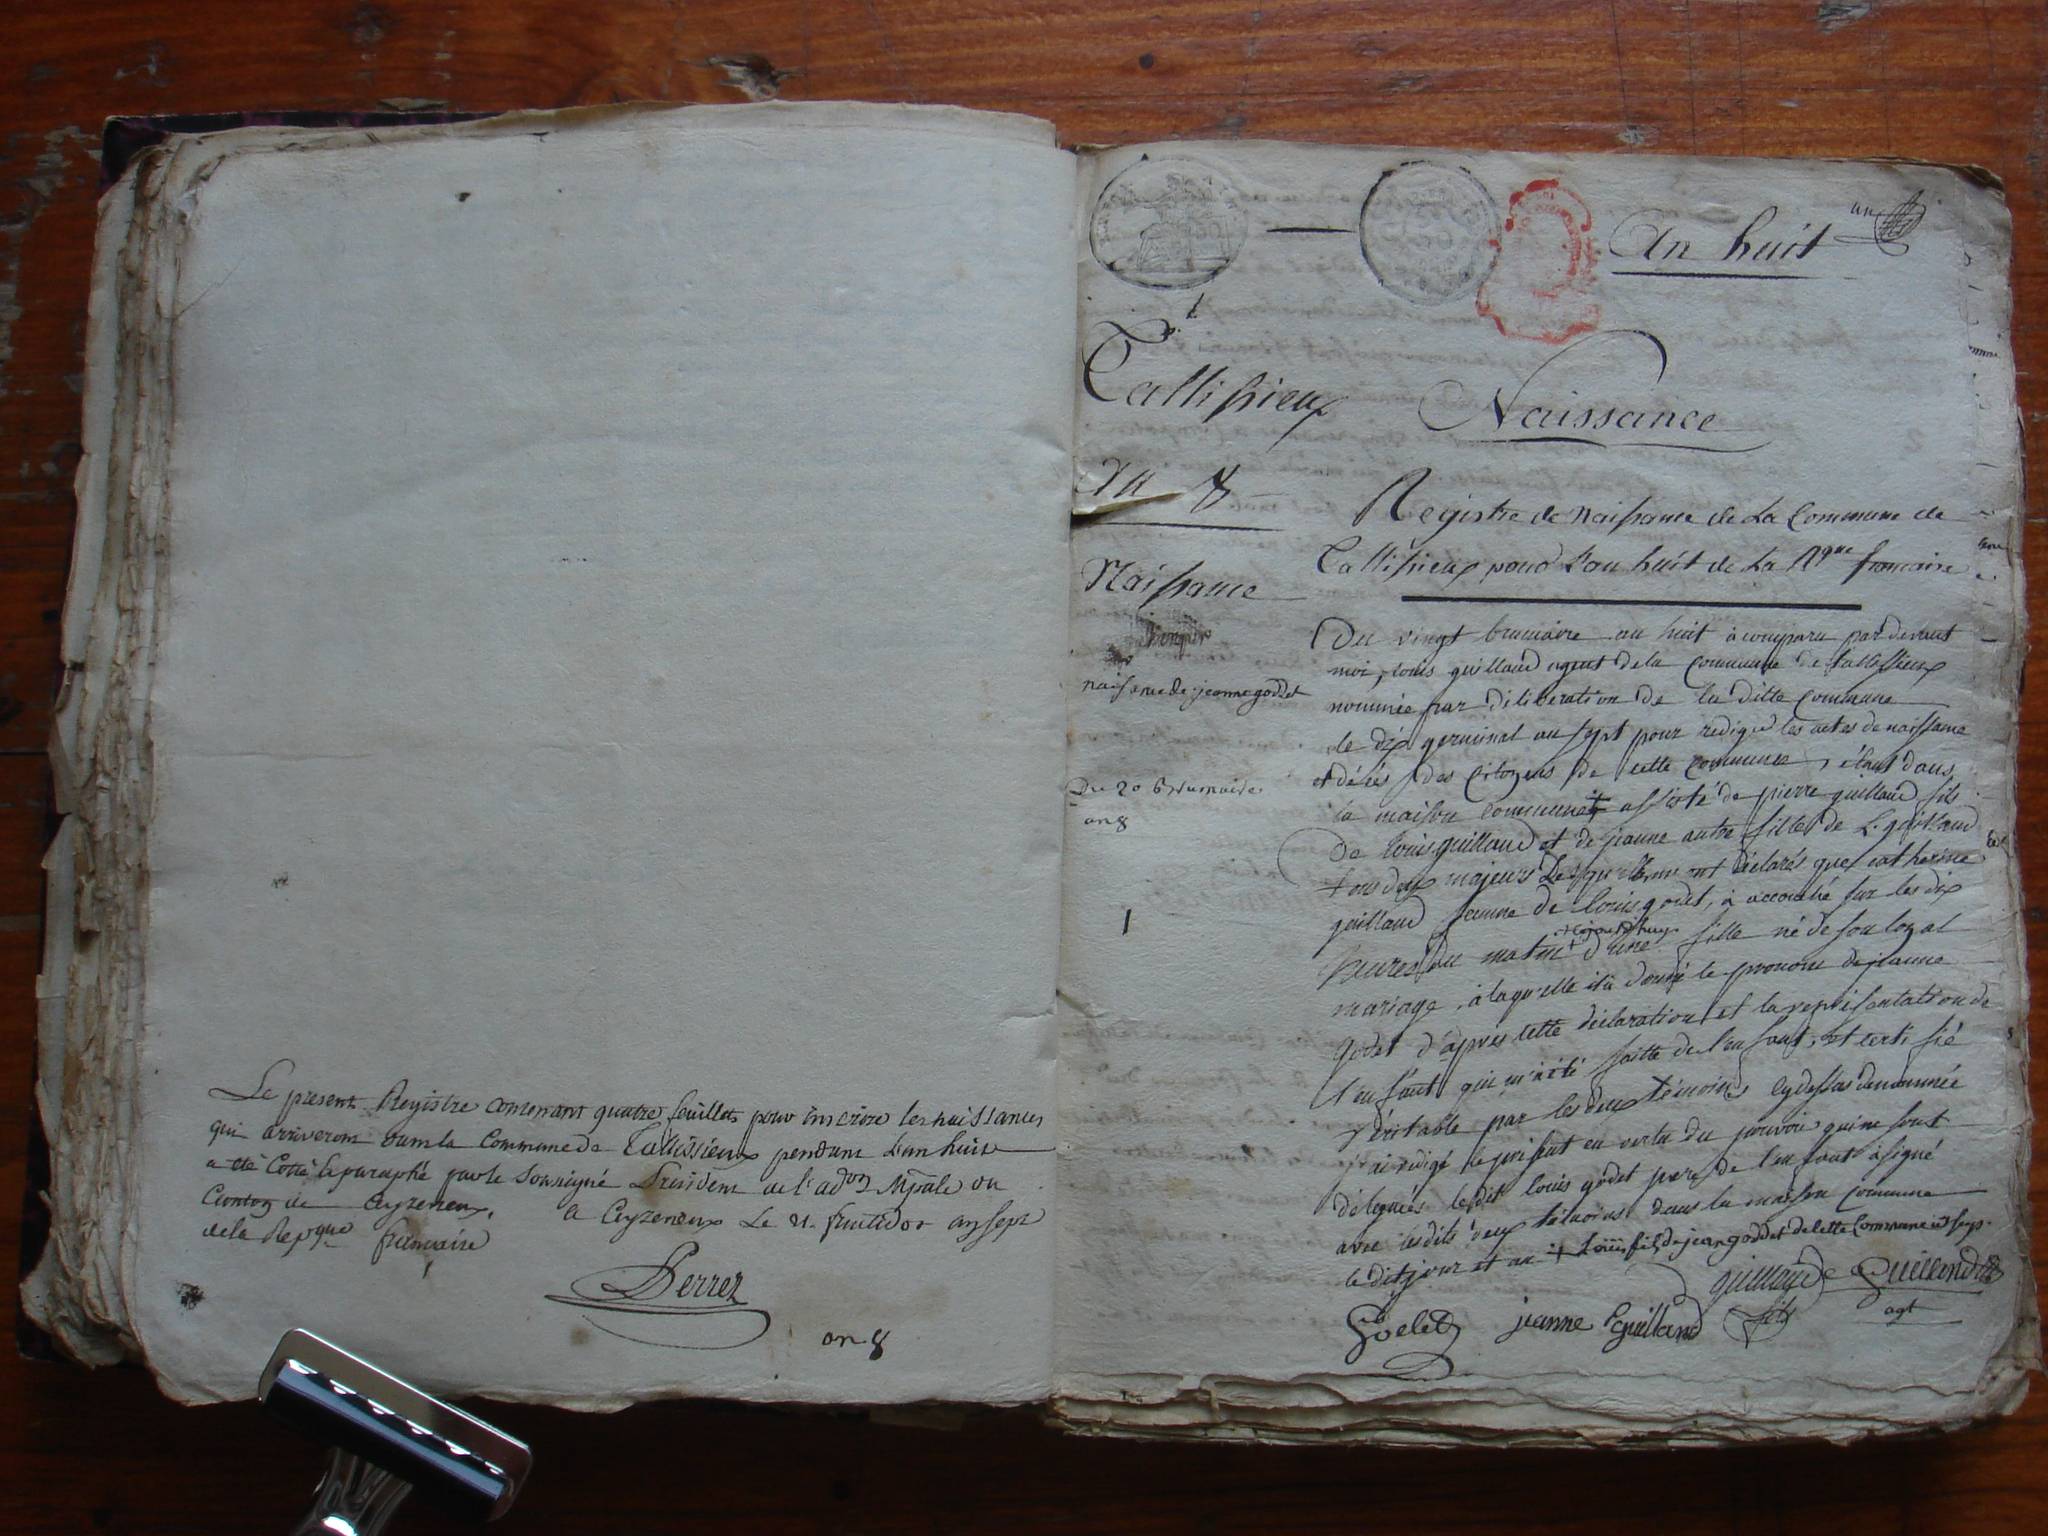 Le present Registre contenant quatre feuillets pour inscrire les naissances
qui arriveront dans la Commune de Tallissieux pendant l'an huit
a eté Cotté & paraphé par le Soussigné President de l'adon Mpale du
Canton de Ceyzerieux. a Ceyzerieux Le 21 fructidor an sept
de la Repque francaise
Perret
an 8
un
An huit
Tallissieux
Naissance
An 8
Naissance
Registre de Naissance de La Commune de
Tallissieux pour L'an huit de La Rque francaise
naissance de jeanne goddet
Du 20 Brumaire
an 8
1
Du vingt brumaire an huit à comparu par devant
moi, louis guillaud agent de la Commune de tallessieux
nommée par deliberation de la ditte commune
le dix germinal an sept pour redigé les actes de naissance
et décès des Citoyens de cette commune, étant dans
la maison commune assisté de pierre guillaud fils
De louis guillaud et de jeanne autre fille de L. guillaud
tous deux majeurs Lesquels m'ont déclarés que catherine
guillaud femme de louis godet, à accouché sur les dix
heures du matin + d'une fille né de son loyal
+ aujourd'huy
mariage, à laquelle il à donné le prenom de jeanne
godet d'après cette déclaration et la représentation de
l'enfant qui m'à été faitte de l'enfant, et certifié
véritable par les deux témoins cy dessus denommée
j'ai rédigé le présent en vertu du pouvoir qui me sont
délégués ledit louis godet pere de l'enfant à signé
avec lesdits deux témoins dans la maison commune
ledit jour et an + Louis fils de jean goddet de cette Commune
Goddet jeanne guilland guillaud fils Guilland
agt